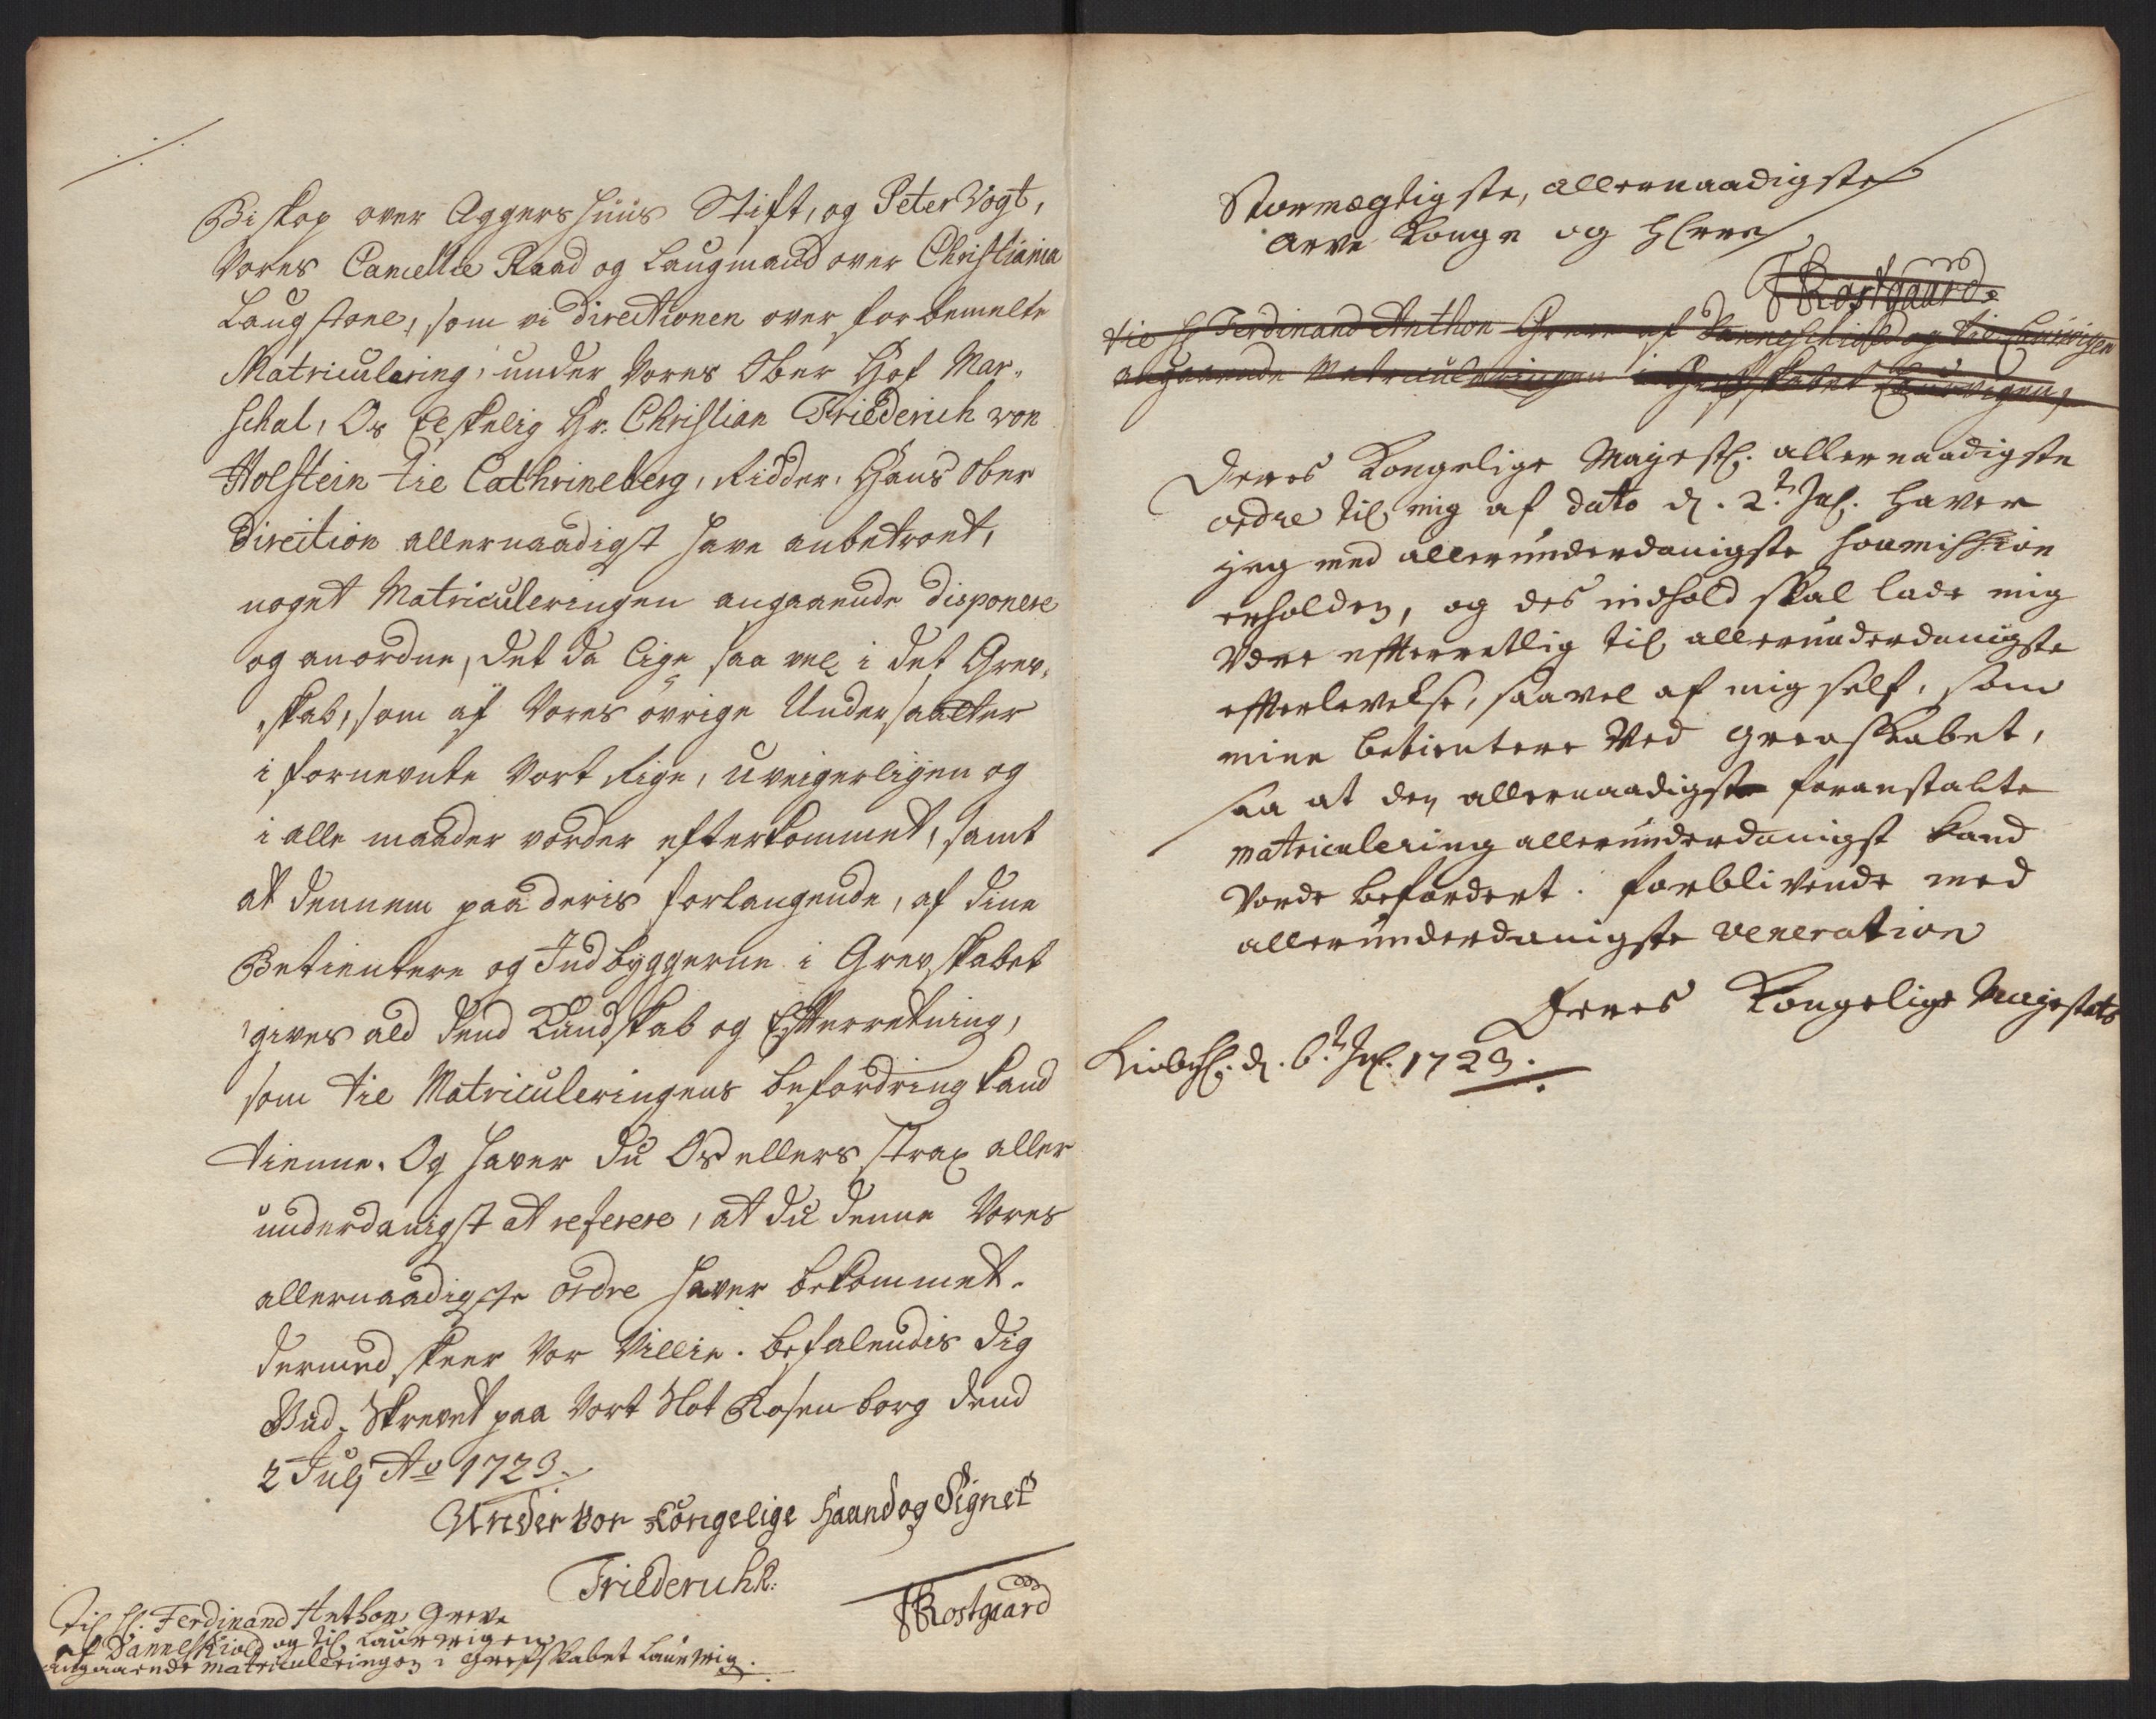 Biskop over Aggershuus Stift, og Peter Vogt,
Vores Cancellie Raad og Laugmand over Christiania
Laugstoel, som vi Directionen over forbemelte
Matriculering, under Vores Ober Hof Mar-
schal, Os Elskelig Hr. Christian Friederich von
Holstein til Cathrineberg, Ridder, Hans Ober
Direction allernaadigst have anbetroet,
noget Matriculeringen angaaende disponere
og anordne, det da lige saa vel i det Grev-
skab, som af Vores øvrige Undersaatter
i fornevnte Vort Rige, uveigerligen og
i alle maader vorder efterkommet, samt
at dennem paa deris forlangende, af dine
Betientere og Indbyggerne i Grevskabet
gives ald dend Kundskab og Efterretning,
som til Matriculeringens befordring kand
tienne. Og haver du Os ellers strax aller
underdanigst at referere, at du denne Vores
allernaadigste ordre haver bekommet.
dermed skeer Vor Villie. befalendis dig
Gud. Skrevet paa Vort Slot Rosenborg dend
2 Julj Ao 1723.
Under Vor Kongelige Haand og Signet
Friederich R.
FRostgaard
Til H. Ferdinand Anthon Greve
af Danneskiold og til Laurwigen
angaaende matriculeringen i Grefskabet Laurwig.
Stormægtigste, allernaadigste
Arve Konge og Herre
FRostgaard
til H Ferdinand Anthon Greve af Danneschiold og til Laurvigen
angaaende Matriculeringen i Grefskabet Laurvigen
Deres Kongelige Mayestt. allernaadigste
ordre til mig af dato d. 2t. Jul. haver
jeg med allerunderdanigste soumission
erholden, og des indhold skal lade mig
være efterretlig til allerunderdanigste
efterlevelse, saavel af mig self, som
mine betientere ved grevskabet,
saa at den allernaadigst foranstalte
matriculering allerunderdanigst kand
vorde befordert. forblivende med
allerunderdanigste veneration
Deres Kongelige Mayestets
Kiøbh. d. 6t. Jul. 1723.